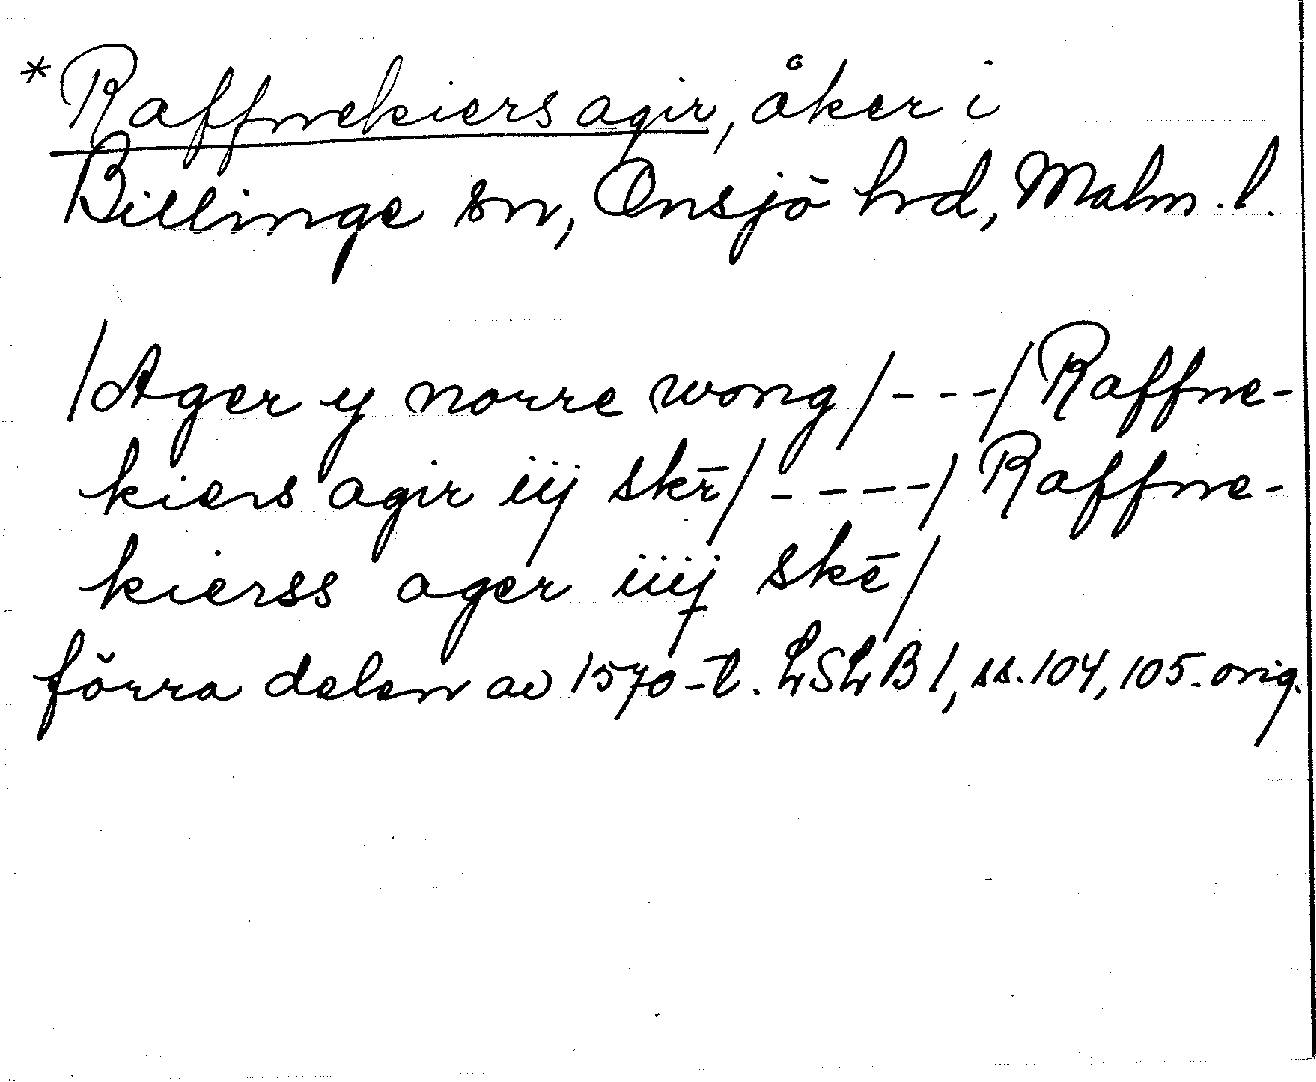 *Raffnekiers agir, åker i
Billinge sn, Onsjö hrd, Malm. l.
/Ager y norre wong/---/Raffne-
kiers agir iij skē/----/Raffne-
kierss ager iiij skē/
förra delen av 1570-t. LSLB 1, ss. 104, 105. orig.